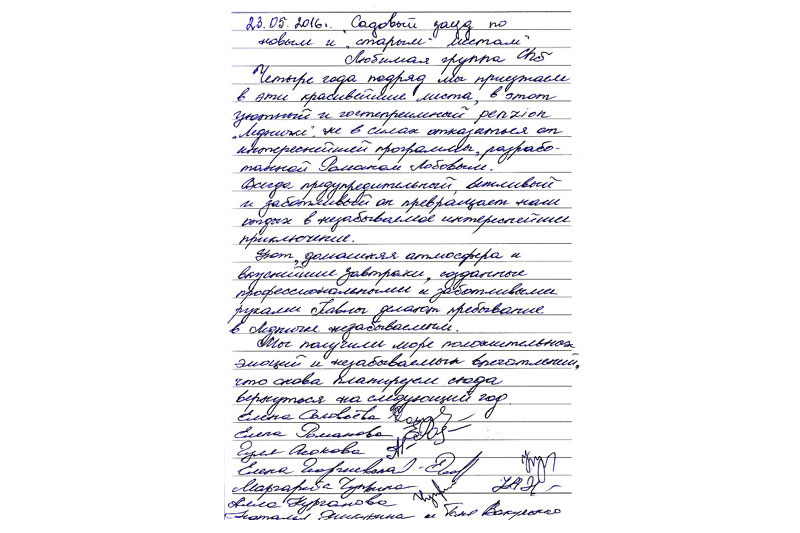 23.05.2016г. "Садовый заезд по
новым и "старым" местам"
Любимая группа СПб
Четыре года подряд мы приезжаем
в эти красивейшие места, в этот
уютный и гостеприимный penzion
"Ледничка", не в силах отказаться от
интереснейшей программы, разрабо-
танной Романом Лобовым.
Всегда предупредительный, вежливый
и заботливый он превращает наш
отдых в незабываемое интереснейшее
приключение.
Уют, домашняя атмосфера и
вкуснейшие завтраки, созданные
профессиональными и заботливыми
руками Павлы делают пребывание
в Ледничке незабываемым.
Мы получили море положительных
эмоций и незабываемых впечатлений,
что снова планируем сюда
вернуться на следующий год.
Елена Соловьева
Елена Романова
Гуля
Елена Георгиевна
Маргарита
Алла Курганова
Наталья и Таня Вакуленко